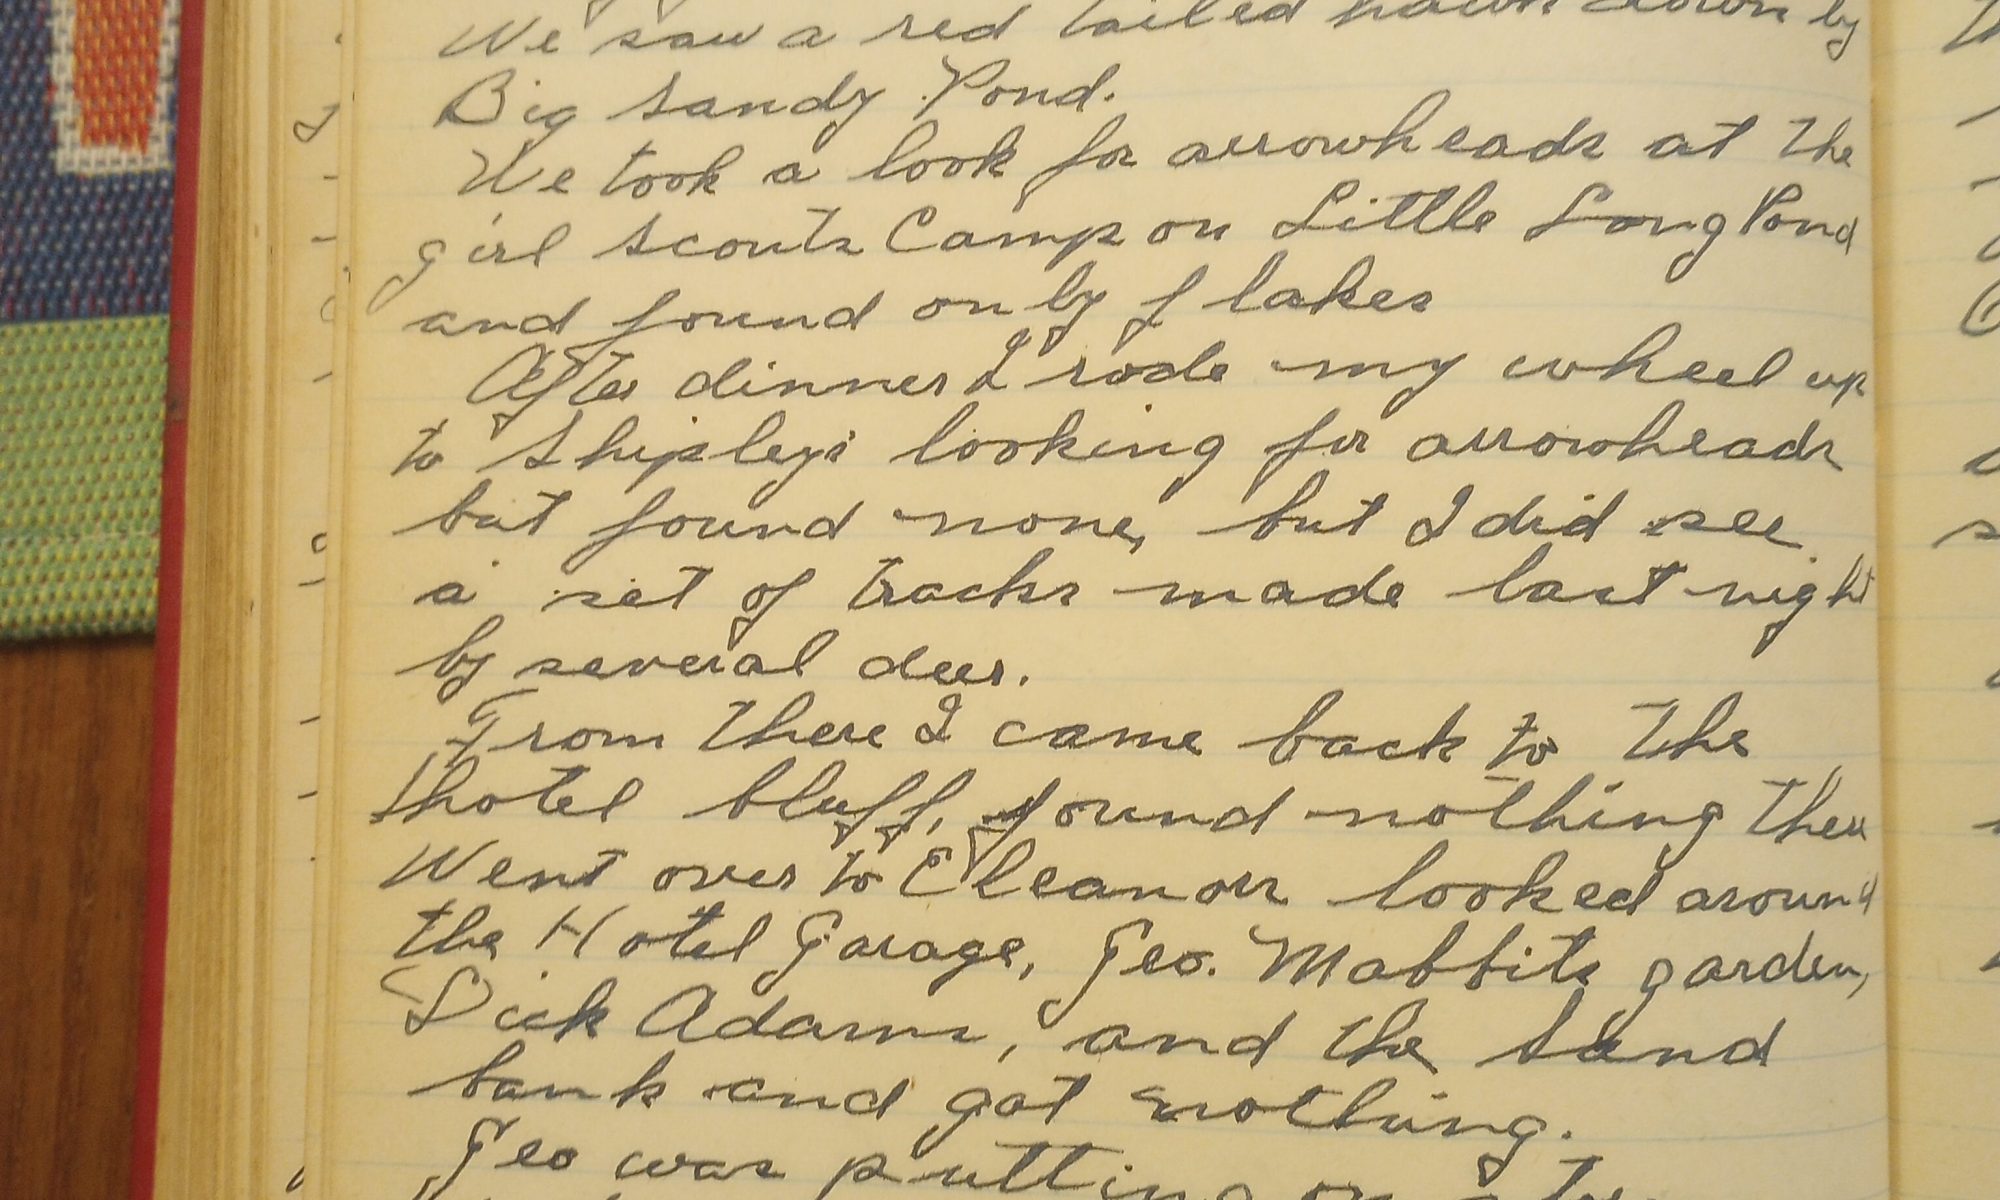 We saw a red tailed hawk down by
Big Sandy Pond.
We took a look for arrowheads at the
girl scouts Camp on Little Long Pond
and found only flakes
After dinner I rode my wheel up
to Shipleys looking for arrowheads
but found none, but I did see
a set of tracks made last night
by several deer.
From there I came back to the
hotel bluff, found nothing there
Went over to Eleanors looked around
the Hotel Garage, Geo. Mabbits garden,
Dick Adams, and the sand
bank and got nothing.
Geo was putting on a